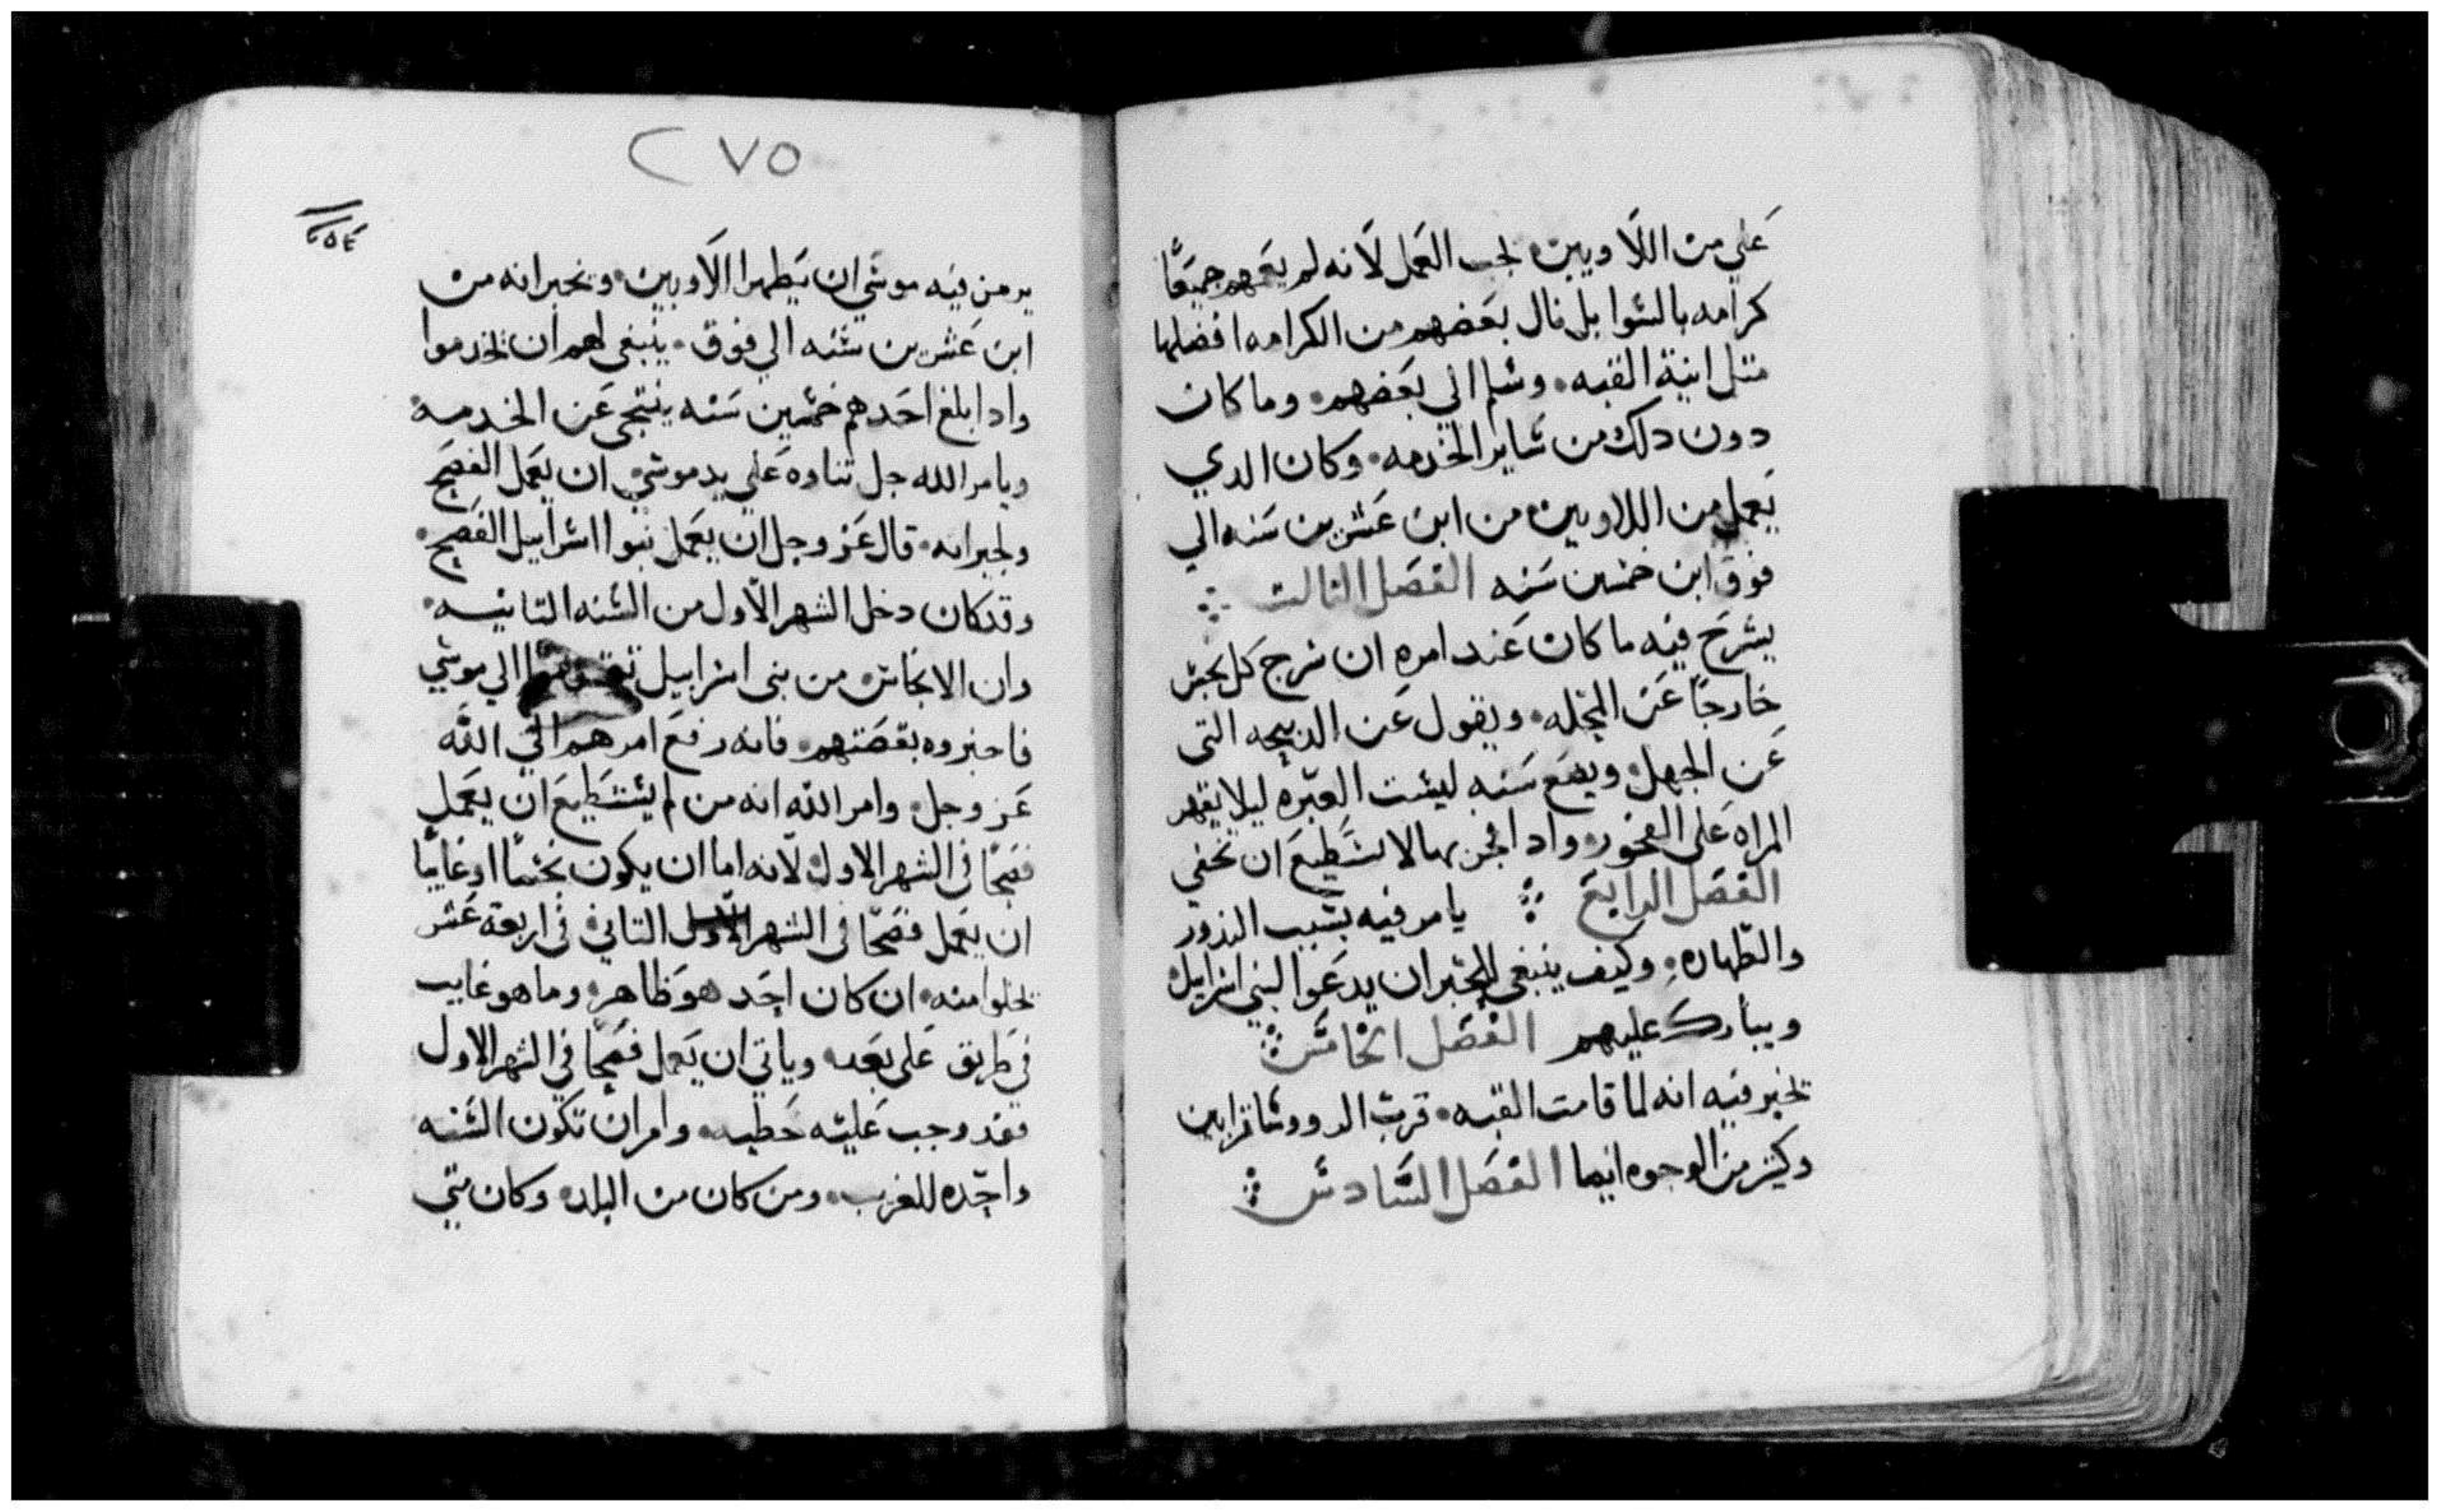 علي من اللاويين يجب العمل لانه لم يعمهم جميعًا
كرامه بالسوا بل نال بعضهم من الكرامه افضلها
متل انية القبه • وسلم الي بعضهم • وما كان
دون دلك من ساير الخدمه • وكان الدي
يعمل من اللاويين من ابن عشرين سنه الي
فوق ابن خمسين سنه الفصل الثالث
يشرح فيه ما كان عند امره ان يخرج كل نجس
خارجًا عن المحله • ويقول عن الدبيحه التي
عن الجهل • ويضع سنه ليست العبره ليلا يقهر
المراه على الفجور • وادا فجر بها لا تستطيع ان تخفي
الفصل الرابع يامر فيه بسبب الندور
والطهاره • وكيف ينبغي للحبر ان يدعوا لبني اسرايل
ويبارك عليهم الفصل الخامس
يخبر فيه انه لما قامت القبه • قرب الروسا قرابين
وكثير من الوجوه ايضا الفصل السادس
٢٧٥
٢٥٤
يرمز فيه موسي ان يطهر اللاويين • ويخبر انه من
ابن عشرين سنه الي فوق • ينبغي لهم ان يخدموا
وادا بلغ احدهم خمسين سنه ينتحي عن الخدمه
ويامر الله جل تناوه علي يد موسي ان يعمل الفصح
ولجيرانه • قال عز وجل ان يعمل بنوا اسراييل الفصح •
وقد كان دخل الشهر الاول من السنه التانيه •
وان الانجاس من بني اسراييل الي موسي
فاخبروه بقصتهم • فانه رفع امرهم الي الله
عز وجل • وامر الله انه من لم يستطيع ان يعمل
فصحًا في الشهر الاول • لانه اما ان يكون نجسًا او غايبًا
ان يعمل فصحًا في الشهر الاول التاني في اربعة عشر
يخلوا منه • ان كان احد هو طاهر • وما هو غايب
في طريق على بعد • وياتي ان يعمل فصحًا في الشهر الاول
فقد وجب عليه خطيه • وامر ان تكون السنه
واحده للغريب • ومن كان من البلد • وكان متي